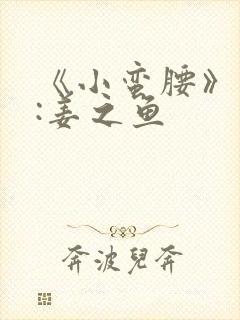 《小蛮腰》
:姜之鱼
奔波兒奔